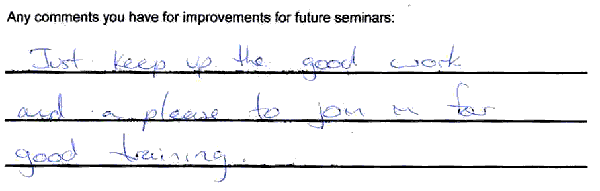 Any comments you have for improvements for future seminars:
Just keep up the good work
and a please to join in for
good training.